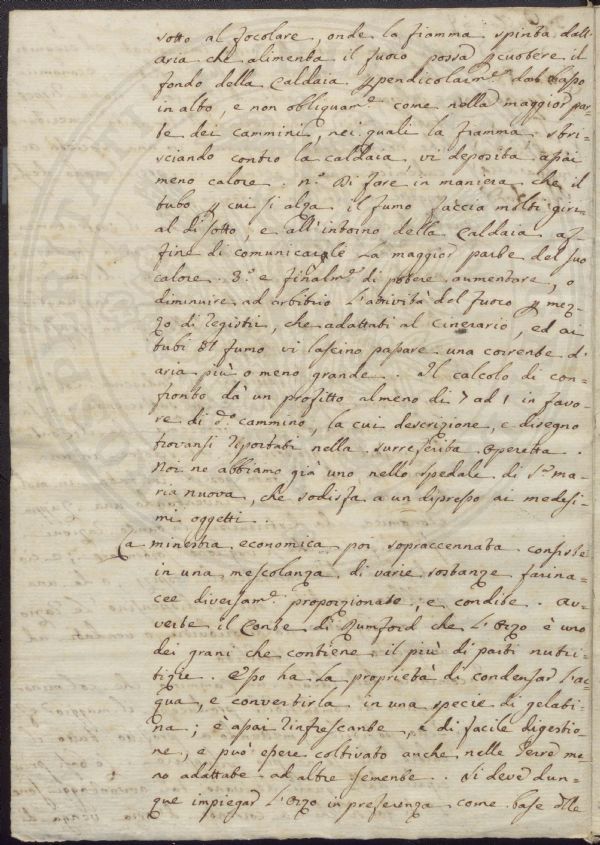 sotto al focolare, onde la fiamma spinta dall'
aria che alimenta il fuoco possa percuotere il
fondo della Caldaia ppendicolarm.e dal basso
in alto, e non obliquam.e come nella maggior par=
te dei cammini, nei quali la fiamma, sbri=
sciando contro la caldaia, vi deposita assai
meno calore. n.o Di fare in maniera che il
tubo p cui si alza il fumo faccia molti giri
al di sotto, e all'intorno della Caldaia af=
fine di comunicarle la maggior parte del suo
calore. 3.o e finalm.e di potere aumentare, o
diminuire ad arbitrio l'attività del fuoco p mez=
zo di registri, che adattati al cinerario, ed ai
tubi del fumo vi lascino passare una corrente d'
aria più o meno grande. Il calcolo di con=
fronto dà un profitto almeno di 7 ad 1 in favo=
re di d.o cammino, la cui descrizione, e disegno
trovansi riportati nella surreferita operetta.
Noi ne abbiamo già uno nello spedale di S.a Ma=
ria nuova, che sodisfa a un dipresso ai medesi=
mi oggetti.
La minestra economica poi sopraccennata consiste
in una mescolanza di varie sostanze farina=
cee diversam.e proporzionate, e condite. Av=
verte il Conte di Rumford che l'Orzo è uno
dei grani che contiene il più di parti nutri=
tizie. Esso ha la proprietà di condensar l'ac=
qua, e convertirla in una specie di gelati=
na; è assai rinfrescante, e di facile digestio=
ne, e può essere coltivato anche nelle Terre me=
no adattate ad altre semente. Si deve dun=
que impiegar l'Orzo in preferenza come base delle